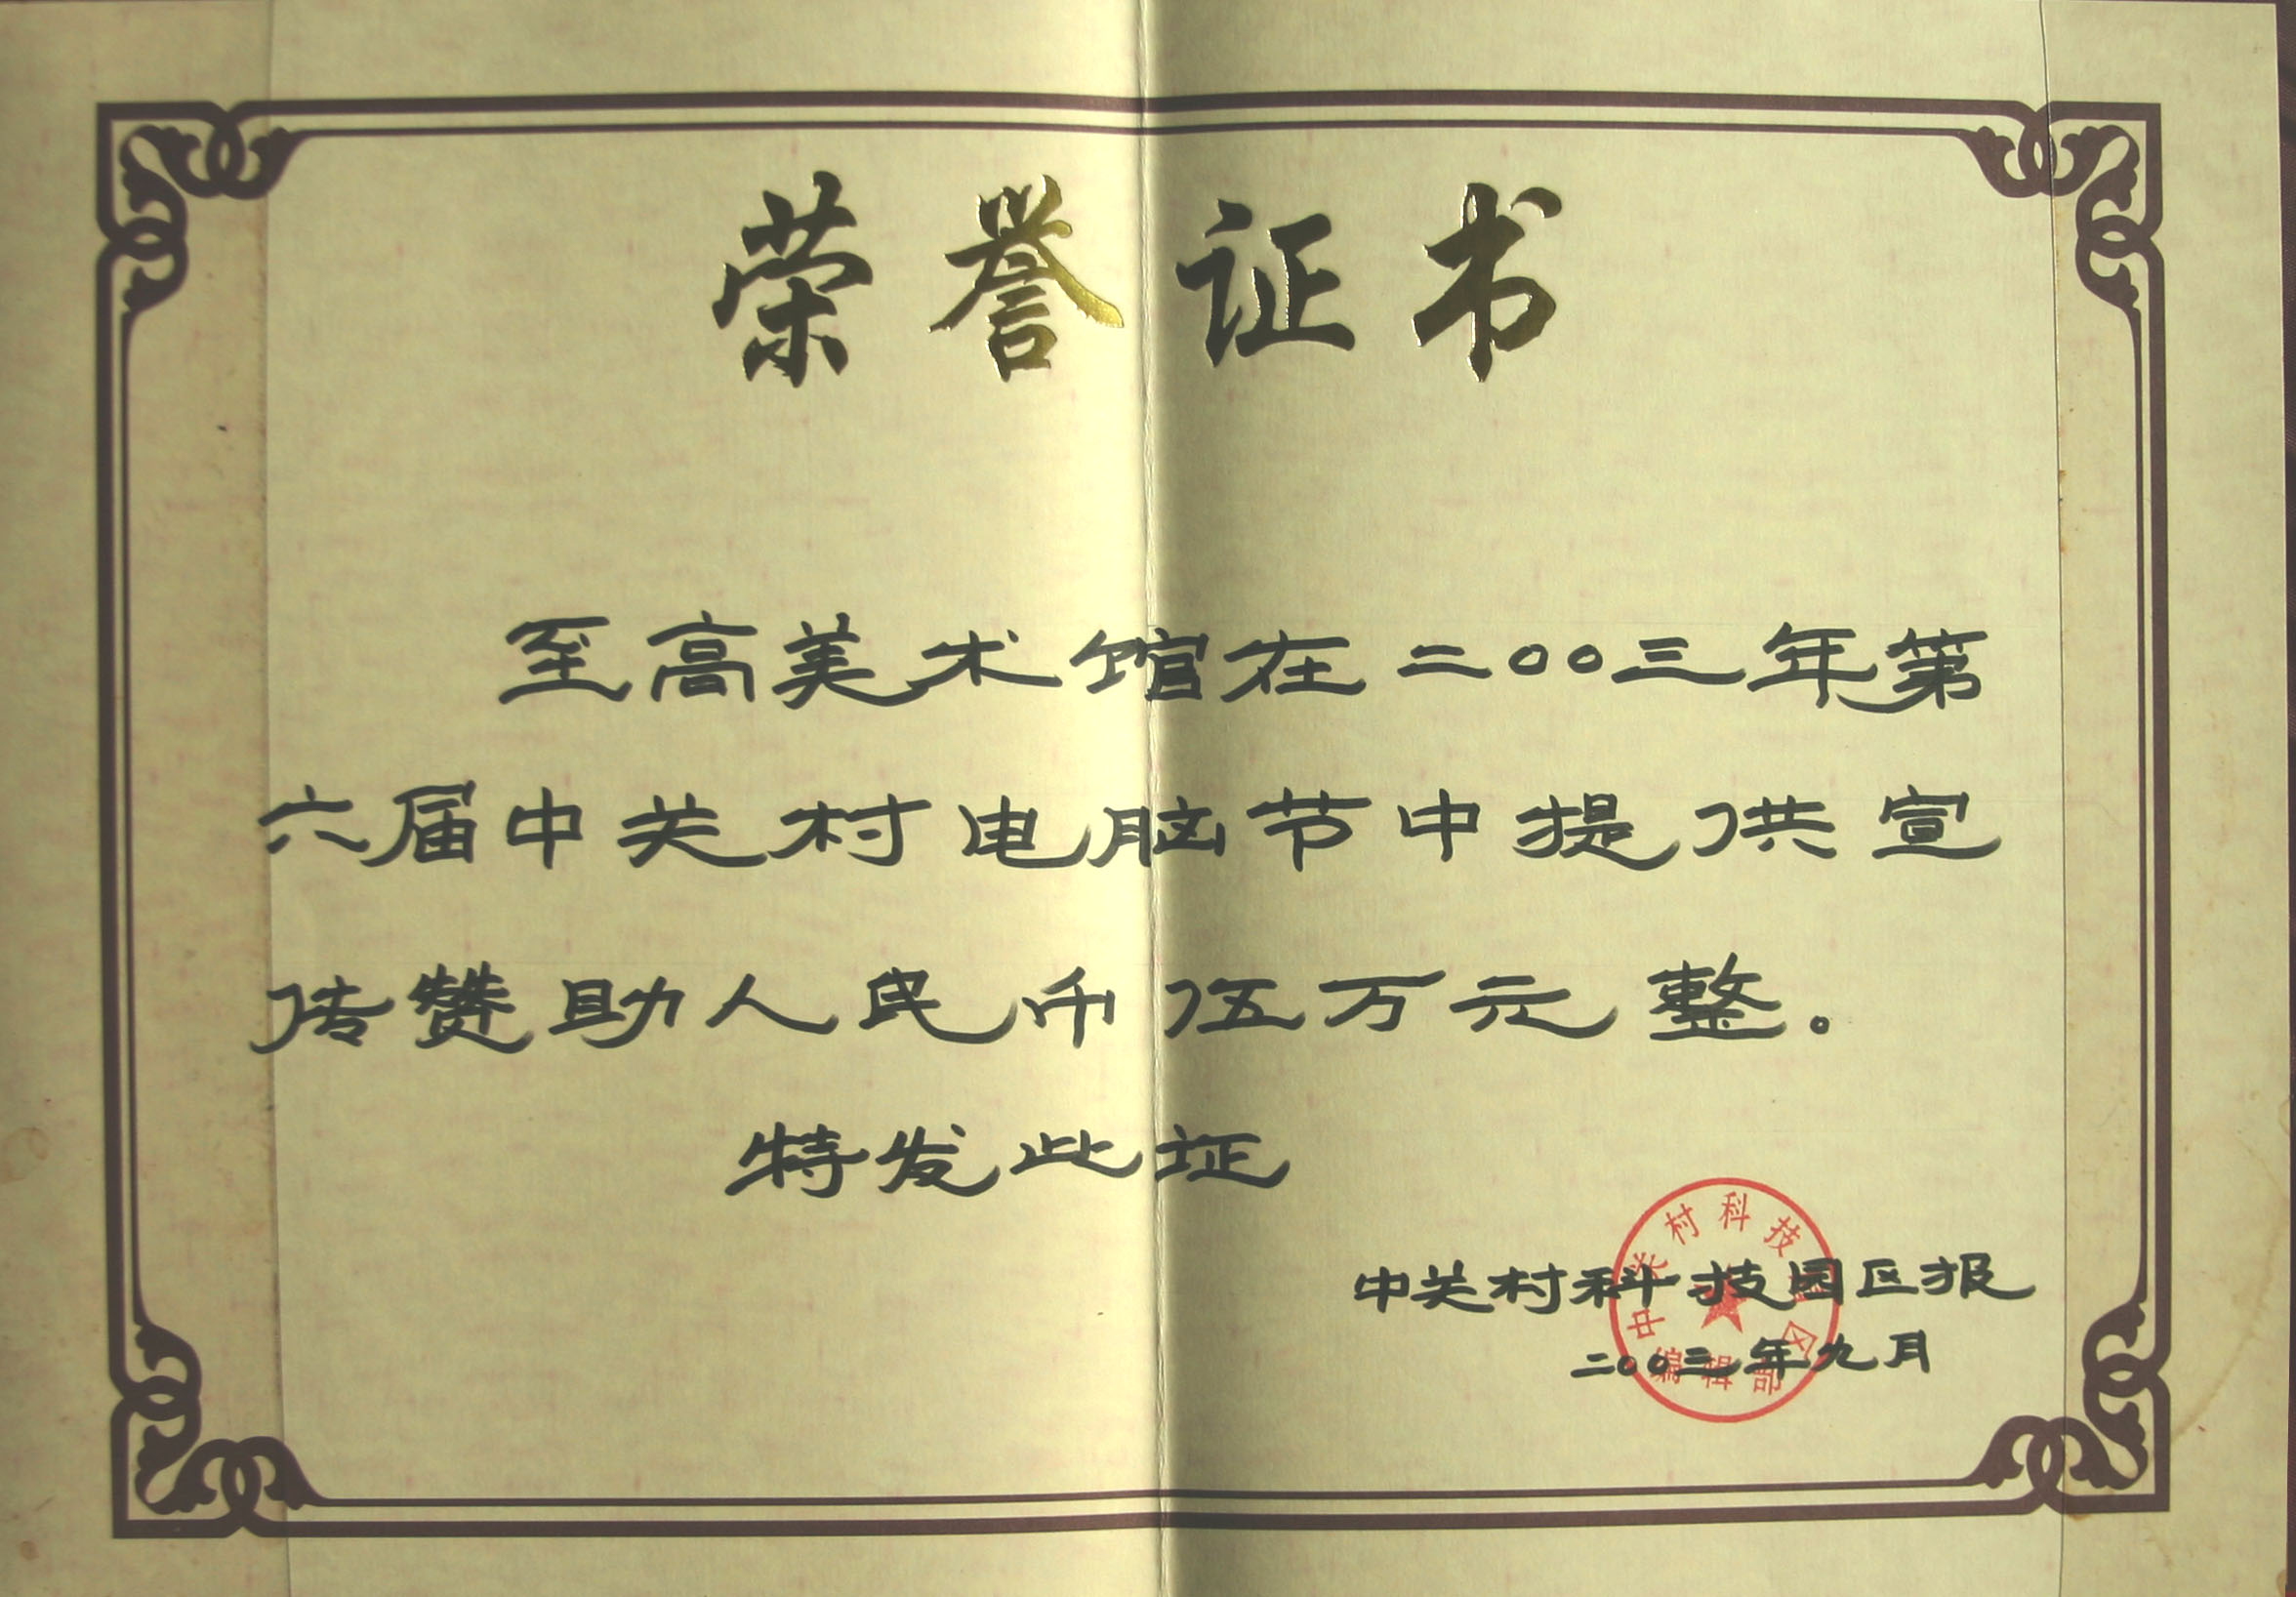 荣誉证书
至高美术馆在二〇〇三年第
六届中关村电脑节中提供宣
传赞助人民币伍万元整。
特发此证
中关村科技园区报
二〇〇三年九月
中关村科技园区
编辑部